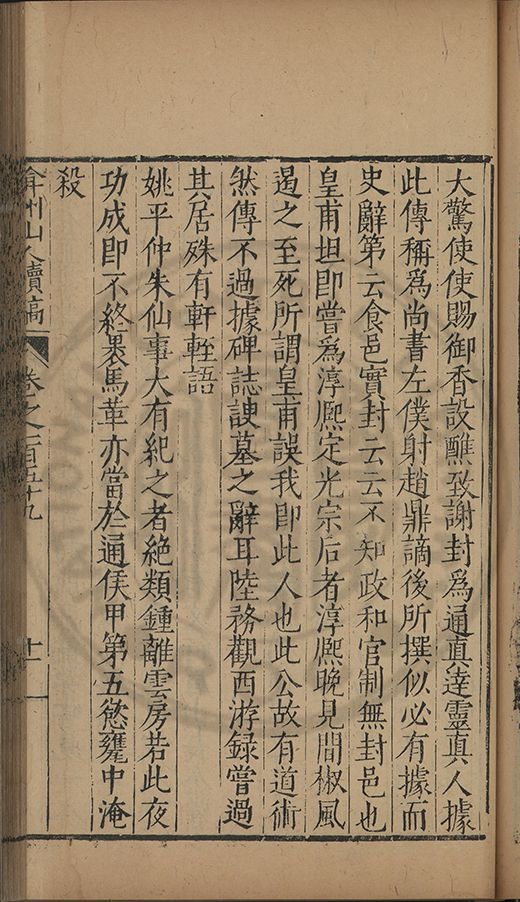 大驚使使賜御香設醮致謝封為通真達靈真人據
此傳稱為尚書左僕射趙鼎謫後所撰似必有據而
史辭第云食邑實封云云不知政和官制無封邑也
皇甫坦即嘗為淳熈定光宗后者淳熈晚見間椒風
遏之至死所謂皇甫誤我即此人也此公故有道術
然傳不過據碑誌諛墓之辭耳陸務觀西游録嘗過
其居殊有軒輊語
姚平仲朱仙事大有紀之者絶類鍾離雲房若此夜
功成即不終裹馬革亦當於通侯甲第五慾甕中淹
殺
弇州山人續稿 卷之一百五十九 十一